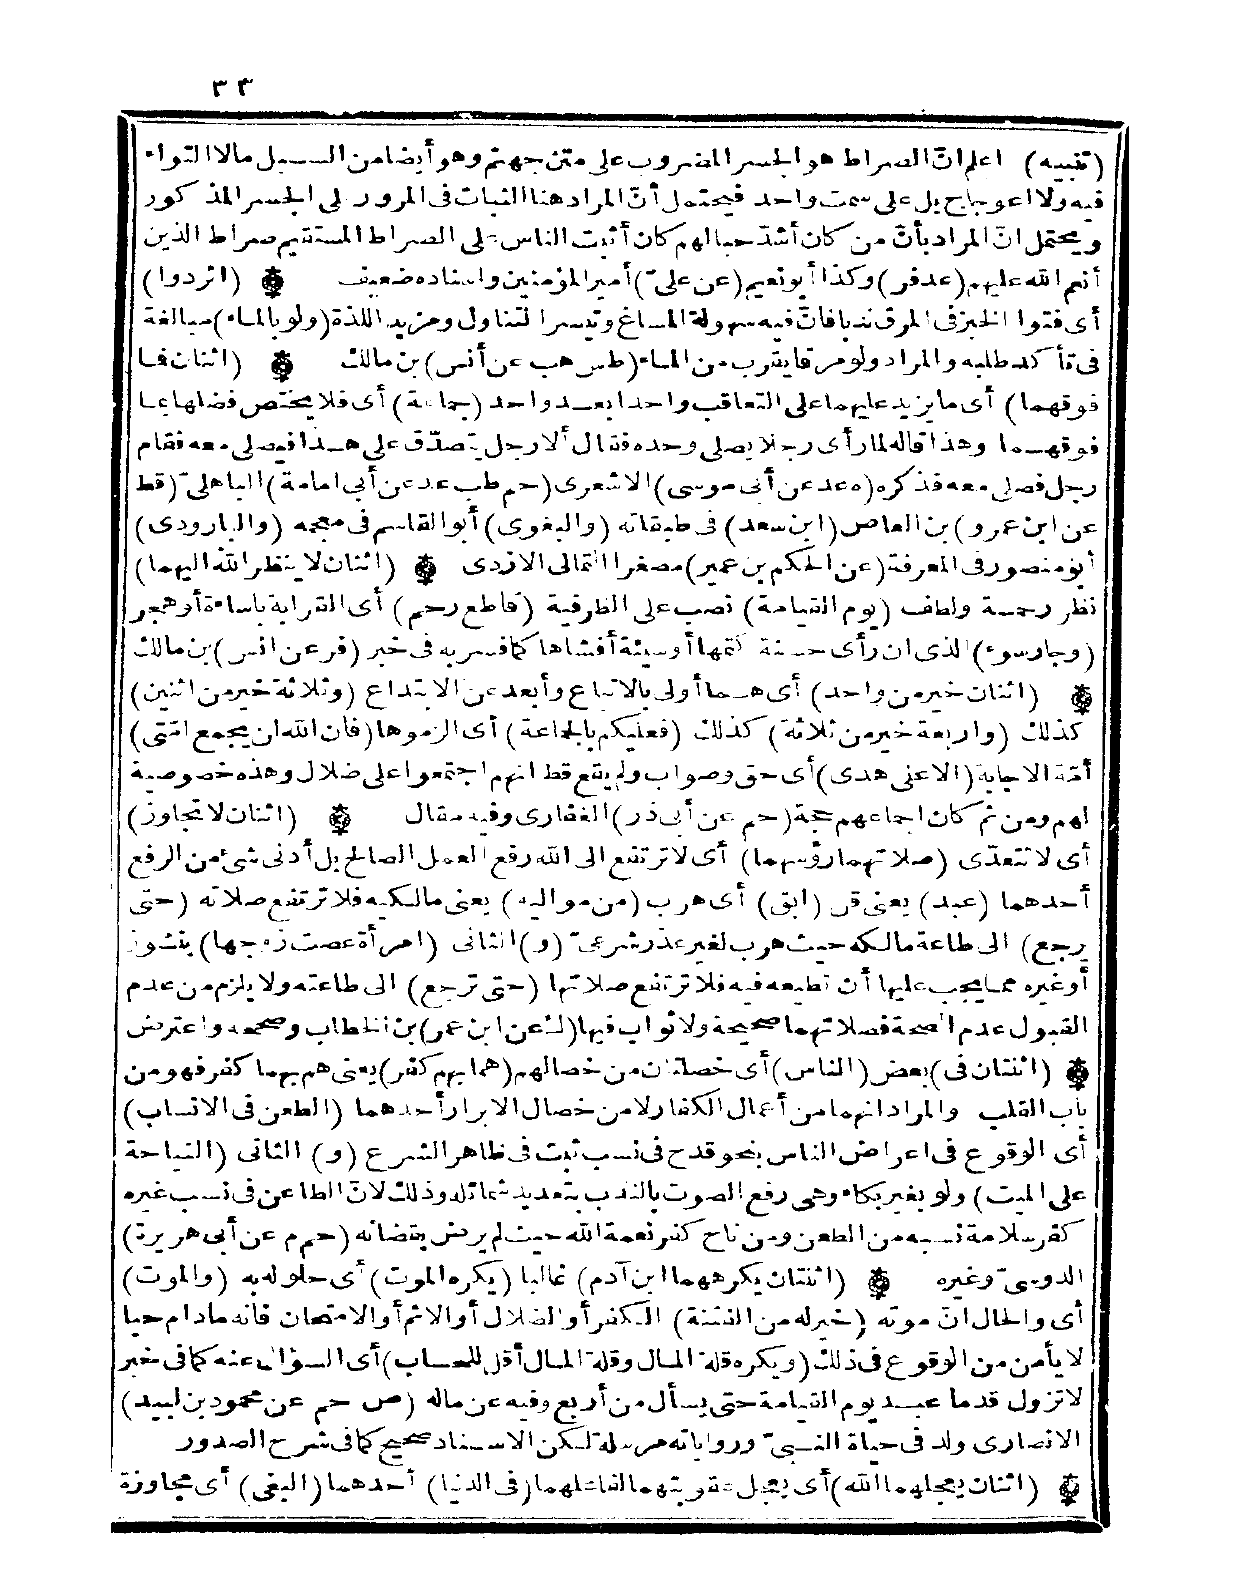 ٣٣
(تنبيه) اعلم انّ الصراط هو الجسر المضروب على متن جهنم وهو أيضا من السبيل مالا التواء
فيه ولا اعوجاج بل على سمت واحد فيحتمل أنّ المراد هنا الثبات فى المرور على الجسر المذكور
ويحتمل انّ المراد بأنّ من كان أشدّ حبا لهم كان أثبت الناس على الصراط المستقيم صراط الذين
أنعم الله عليهم (عد فر) وكذا أبو نعيم (عن علىّ) أمير المؤمنين واسناده ضعيف ۞ (اثردوا)
أى فتوا الخبز فى المرق ندبا فانّ فيه سهولة المساغ وتيسر التناول ومزيد اللذة (ولو بالماء) مبالغة
فى تأكد طلبه والمراد ولو مرقا يقرب من الماء (طس هب عن أنس) بن مالك ۞ (اثنان فما
فوقهما) أى ما يزيد عليهما على التعاقب واحدا بعد واحد (جماعة) أى فلا يختص فضلها بما
فوقهما وهذا قاله لما رأى رجلا يصلى وحده فقال ألا رجل يتصدّق على هذا فيصلى معه فقام
رجل فصلى معه فذكره (ه عد عن أبى موسى) الاشعرى (حم طب عد عن أبى امامة) الباهلىّ (قط
عن ابن عمرو) بن العاص (ابن سعد) فى طبقاته (والبغوى) أبو القاسم فى معجمه (والبارودى)
أبو منصور فى المعرفة (عن الحكم بن عمير) مصغرا الثمالى الازدى ۞ (اثنان لا ينظر الله اليهما)
نظر رحمة ولطف (يوم القيامة) نصب على الظرفية (قاطع رحم) أى القرابة باساءة أو هجر
(وجار سوء) الذى ان رأى حسنة كتمها أو سيئة أفشاها كما فسر به فى خبر (فر عن انس) بن مالك
۞ (اثنان خير من واحد) أى هما أولى بالاتباع وأبعد عن الابتداع (وثلاثة خير من اثنين)
كذلك (واربعة خير من ثلاثة) كذلك (فعليكم بالجماعة) أى الزموها (فان الله ان يجمع امّتى)
أمّة الاجابة (الا على هدى) أى حق وصواب ولم يقع قط انهم اجتمعوا على ضلال وهذه خصوصية
لهم ومن ثم كان اجماعهم حجة (حم عن أبى ذر) الغفارى وفيه مقال ۞ (اثنان لا تجاوز)
أى لا تتعدّى (صلاتهما رؤسهما) أى لا ترتفع الى الله رفع العمل الصالح بل أدنى شئ من الرفع
أحدهما (عبد) يعنى قن (ابق) أى هرب (من مواليه) يعنى مالكيه فلا ترتفع صلاته (حتى
يرجع) الى طاعة مالكه حيث هرب لغير عذر شرعىّ (و) الثانى (امرأة عصت زوجها) بنشوز
أو غيره مما يجب عليها أن تطيعه فيه فلا ترتفع صلاتها (حتى ترجع) الى طاعته ولا يلزم من عدم
القبول عدم الصحة فصلاتهما صحيحة ولا ثواب فيها (ك عن ابن عمر) بن الخطاب وصححه واعترض
۞ (اثنتان فى) بعض (الناس) أى خصلتان من خصالهم (هما بهم كفر) يعنى هم بهما كفر فهو من
باب القلب والمراد انهما من أعمال الكفار لا من خصال الابرار أحدهما (الطعن فى الانساب)
أى الوقوع فى اعراض الناس بنحو قدح فى نسب ثبت فى ظاهر الشرع (و) الثانى (النياحة
على الميت) ولو بغير بكاء وهى رفع الصوت بالندب بتعديد شمائله وذلك لانّ الطاعن فى نسب غيره
كفر سلامة نسبه من الطعن ومن ناح كفر نعمة الله حيث لم يرض بقضائه (حم م عن أبى هريرة)
الدوسىّ وغيره ۞ (اثنتان يكرههما ابن آدم) غالبا (يكره الموت) أى حلوله به (والموت)
أى والحال انّ موته (خير له من الفتنة) الكفر أو الضلال أو الاثم أو الامتحان فانه مادام حيا
لا يأمن من الوقوع فى ذلك (ويكره قلة المال وقلة المال أقل للحساب) أى السؤال عنه كما فى خبر
لا تزول قدما عبد يوم القيامة حتى يسأل من أربع وفيه عن ماله (ص حم عن محمود بن لبيد)
الانصارى ولد فى حياة النبىّ ورواياته مرسلة لكن الاسناد صحيح كما فى شرح الصدور
۞ (اثنان يعجلهما الله) أى يعجل عقوبتهما لفاعلهما (فى الدنيا) أحدهما (البغى) أى مجاوزة